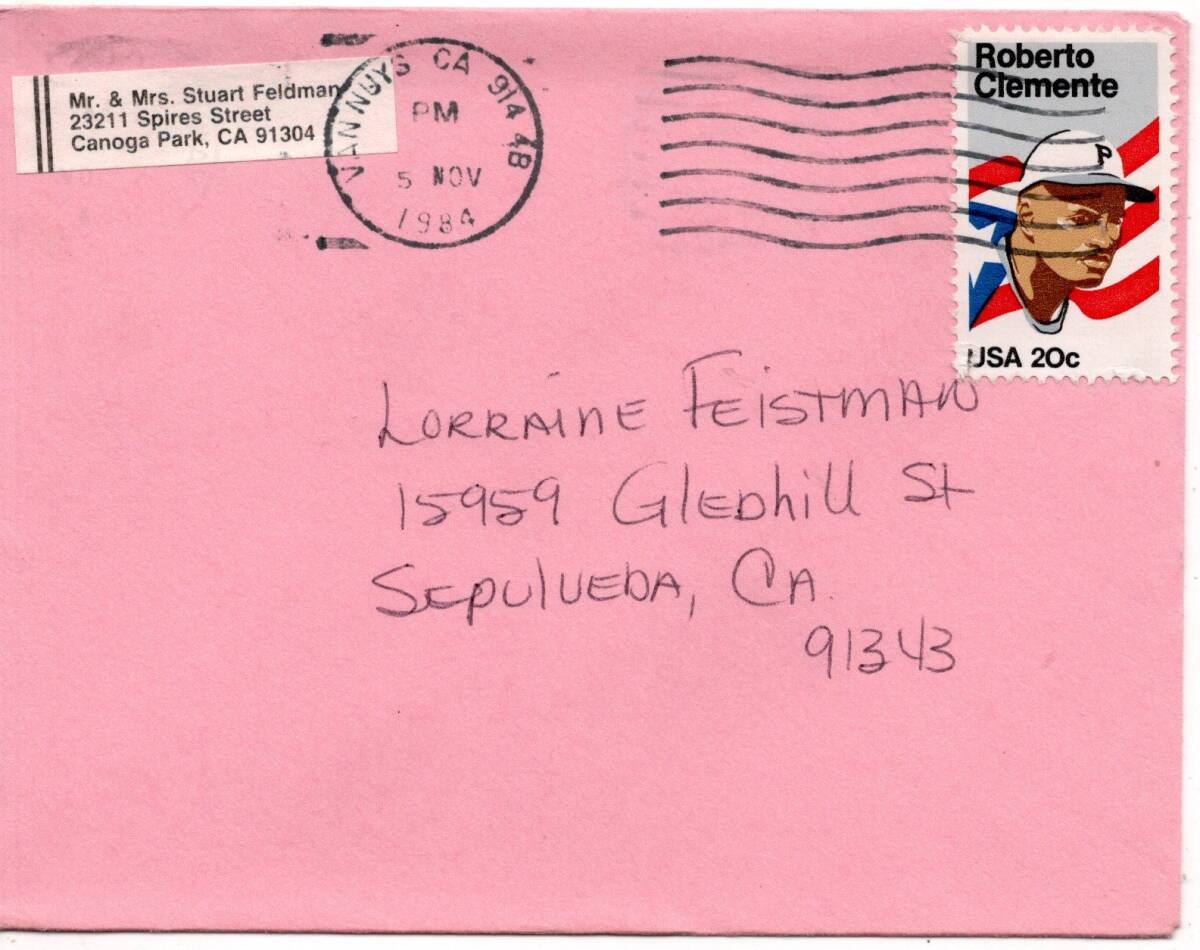 Mr. & Mrs. Stuart Feldman
23211 Spires Street
Canoga Park, CA 91304
VAN NUYS CA 914 4B
PM
5 NOV
1984
Roberto
Clemente
P
USA 20c
LORRAINE FEISTMAN
15959 GLEDhill St
SEpulVEDA, CA.
91343